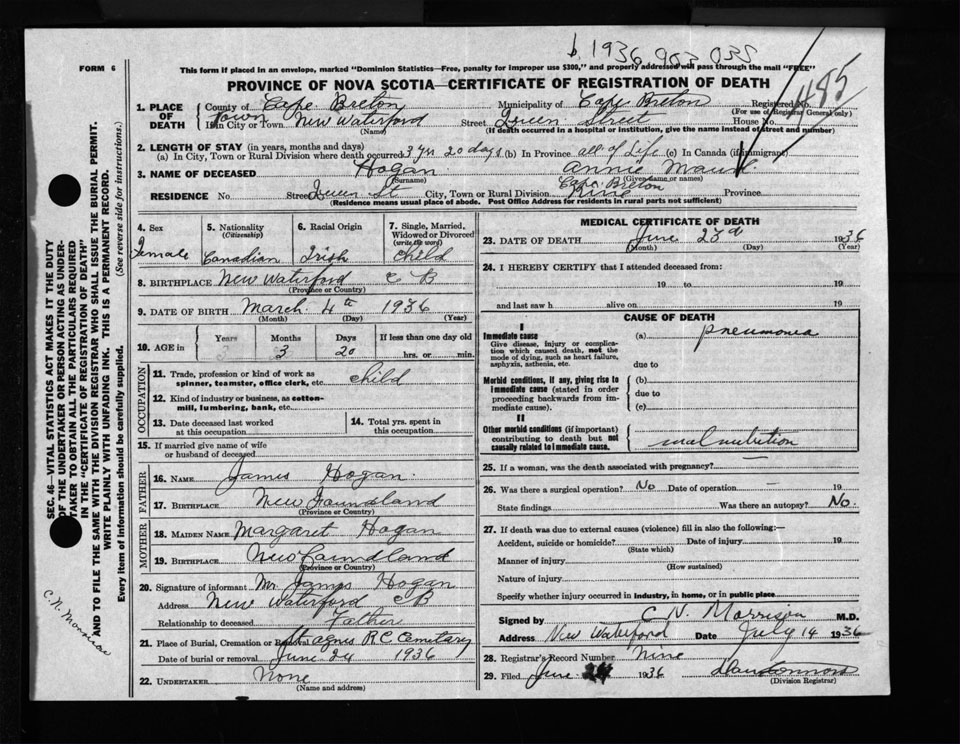 1936
FORM 6
This form if placed in an envelope, marked "Dominion Statistics—Free, penalty for improper use $300," and properly addressed will pass through the mail "FREE"
PROVINCE OF NOVA SCOTIA—CERTIFICATE OF REGISTRATION OF DEATH
485
1. PLACE OF DEATH
County of Cape Breton Municipality of Cape Breton Registered No.
(For use of Registrar General only)
Town
If in City or Town New Waterford Street Queen Street House No.
(Name) (If death occurred in a hospital or institution, give the name instead of street and number)
2. LENGTH OF STAY (in years, months and days)
(a) In City, Town or Rural Division where death occurred 3 20 days (b) In Province all of Life (c) In Canada (if immigrant)
3. NAME OF DECEASED Hogan Annie
(Surname) (Given name or names)
Cape Breton
RESIDENCE No. Street Queen St City, Town or Rural Division Province
(Residence means usual place of abode. Post Office Address for residents in rural parts not sufficient)
4. Sex Female
5. Nationality (Citizenship) Canadian
6. Racial Origin Irish
7. Single, Married, Widowed or Divorced (write the word) child
8. BIRTHPLACE New Waterford C B
(Province or Country)
9. DATE OF BIRTH March 4th 1936
(Month) (Day) (Year)
10. AGE in
Years Months Days If less than one day old
3 20 hrs. or min.
OCCUPATION
11. Trade, profession or kind of work as spinner, teamster, office clerk, etc. child
12. Kind of industry or business, as cotton-mill, lumbering, bank, etc.
13. Date deceased last worked at this occupation
14. Total yrs. spent in this occupation
15. If married give name of wife or husband of deceased
FATHER
16. NAME James Hogan
17. BIRTHPLACE New Foundland
(Province or Country)
MOTHER
18. MAIDEN NAME Margaret Hogan
19. BIRTHPLACE New Foundland
(Province or Country)
20. Signature of informant Mr. James Hogan
Address New Waterford CB
Relationship to deceased Father
21. Place of Burial, Cremation or Removal St agnes R C Cemetary
Date of burial or removal June 24 1936
22. UNDERTAKER None
(Name and address)
MEDICAL CERTIFICATE OF DEATH
23. DATE OF DEATH June 23rd 1936
(Month) (Day) (Year)
24. I HEREBY CERTIFY that I attended deceased from:
19 to 19
and last saw h alive on 19
CAUSE OF DEATH
I
Immediate cause
Give disease, injury or complication which caused death, not the mode of dying, such as heart failure, asphyxia, asthenia, etc.
(a) pneumonia
due to
Morbid conditions, if any, giving rise to immediate cause (stated in order proceeding backwards from immediate cause).
(b)
due to
(c)
II
Other morbid conditions (if important) contributing to death but not causally related to immediate cause.
malnutrition
25. If a woman, was the death associated with pregnancy? —
26. Was there a surgical operation? No Date of operation — 19
State findings Was there an autopsy? No.
27. If death was due to external causes (violence) fill in also the following:—
Accident, suicide or homicide? Date of injury 19
(State which)
Manner of injury
(How sustained)
Nature of injury
Specify whether injury occurred in industry, in home, or in public place
Signed by C N Morrison M.D.
Address New Waterford Date July 14 1936
28. Registrar's Record Number Nine
29. Filed June 1936
(Division Registrar)
SEC. 46—VITAL STATISTICS ACT MAKES IT THE DUTY
OF THE UNDERTAKER OR PERSON ACTING AS UNDER-
TAKER TO OBTAIN ALL THE PARTICULARS REQUIRED
IN THE "CERTIFICATE OF REGISTRATION OF DEATH"
AND TO FILE THE SAME WITH THE DIVISION REGISTRAR WHO SHALL ISSUE THE BURIAL PERMIT.
WRITE PLAINLY WITH UNFADING INK. THIS IS A PERMANENT RECORD.
Every item of information should be carefully supplied. (See reverse side for instructions.)
C. N. Morrison